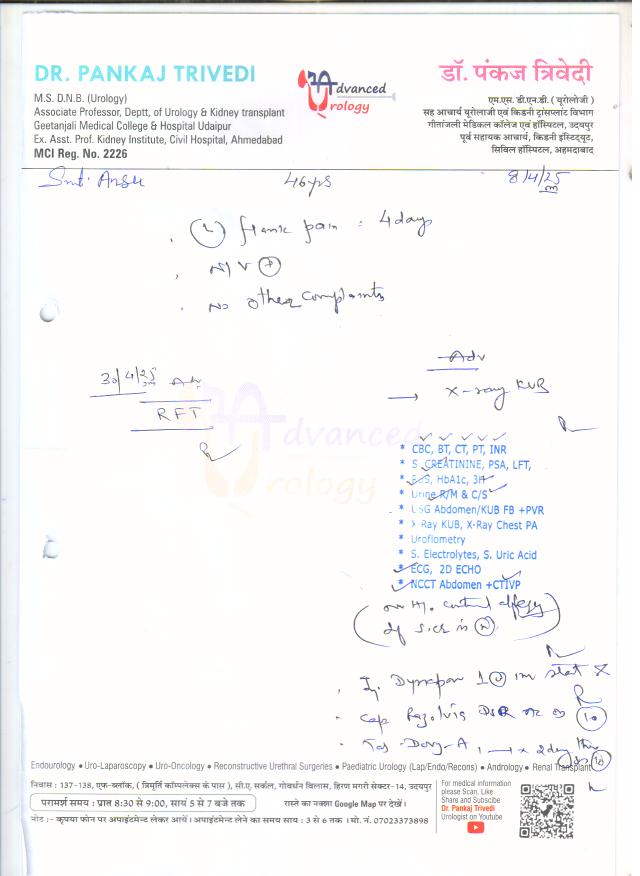 DR. PANKAJ TRIVEDI
M.S. D.N.B. (Urology)
Associate Professor, Deptt, of Urology & Kidney transplant
Geetanjali Medical College & Hospital Udaipur
Ex. Asst. Prof. Kidney Institute, Civil Hospital, Ahmedabad
MCI Reg. No. 2226
Advanced
Urology
डॉ. पंकज त्रिवेदी
एम.एस. डी.एन.डी. ( यूरोलोजी )
सह आचार्य यूरोलाजी एवं किडनी ट्रांसप्लांट विभाग
गीतांजली मेडिकल कॉलेज एवं हॉस्पिटल, उदयपुर
पूर्व सहायक आचार्य, किडनी इंस्टिट्यूट,
सिविल हॉस्पिटल, अहमदाबाद
Smt.
46 yrs
8/4/25
(L) flank pain : 4 days
N/V (+)
No other complaints
Adv
X-ray KUB
30/4/25 Adv
RFT
Advanced
Urology
* CBC, BT, CT, PT, INR
* S. CREATININE, PSA, LFT,
* RBS, HbA1c, 3H
* Urine R/M & C/S
* USG Abdomen/KUB FB +PVR
* X-Ray KUB, X-Ray Chest PA
* Uroflometry
* S. Electrolytes, S. Uric Acid
* ECG, 2D ECHO
* NCCT Abdomen +CTIVP
if S.cr is (N)
1 im stat
Cap
Tab
Endourology ● Uro-Laparoscopy ● Uro-Oncology ● Reconstructive Urethral Surgeries ● Paediatric Urology (Lap/Endo/Recons) ● Andrology ● Renal Transplant
निवास : 137-138, एफ-ब्लॉक, ( त्रिमूर्ति कॉम्पलेक्स के पास ), सी.ए. सर्कल, गोवर्धन विलास, हिरण मगरी सेक्टर-14, उदयपुर
परामर्श समय : प्रात 8:30 से 9:00, सायं 5 से 7 बजे तक
रास्ते का नक्शा Google Map पर देखें।
नोट :- कृपया फोन पर अपाइंटमेन्ट लेकर आयें। अपाइंटमेन्ट लेने का समय सायं : 3 से 6 तक । मो. नं. 07023373898
For medical information
please Scan, Like
Share and Subscibe
Dr. Pankaj Trivedi
Urologist on Youtube